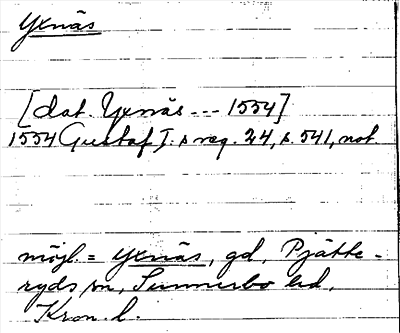 Yxnäs
[dat. Yxnäs --- 1554]
1554 Gustaf I:s reg. 24, s. 541, not
möjl. = Yxnäs, gd, Pjätte-
ryds sn, Sunnerbo hd,
Kron. l.